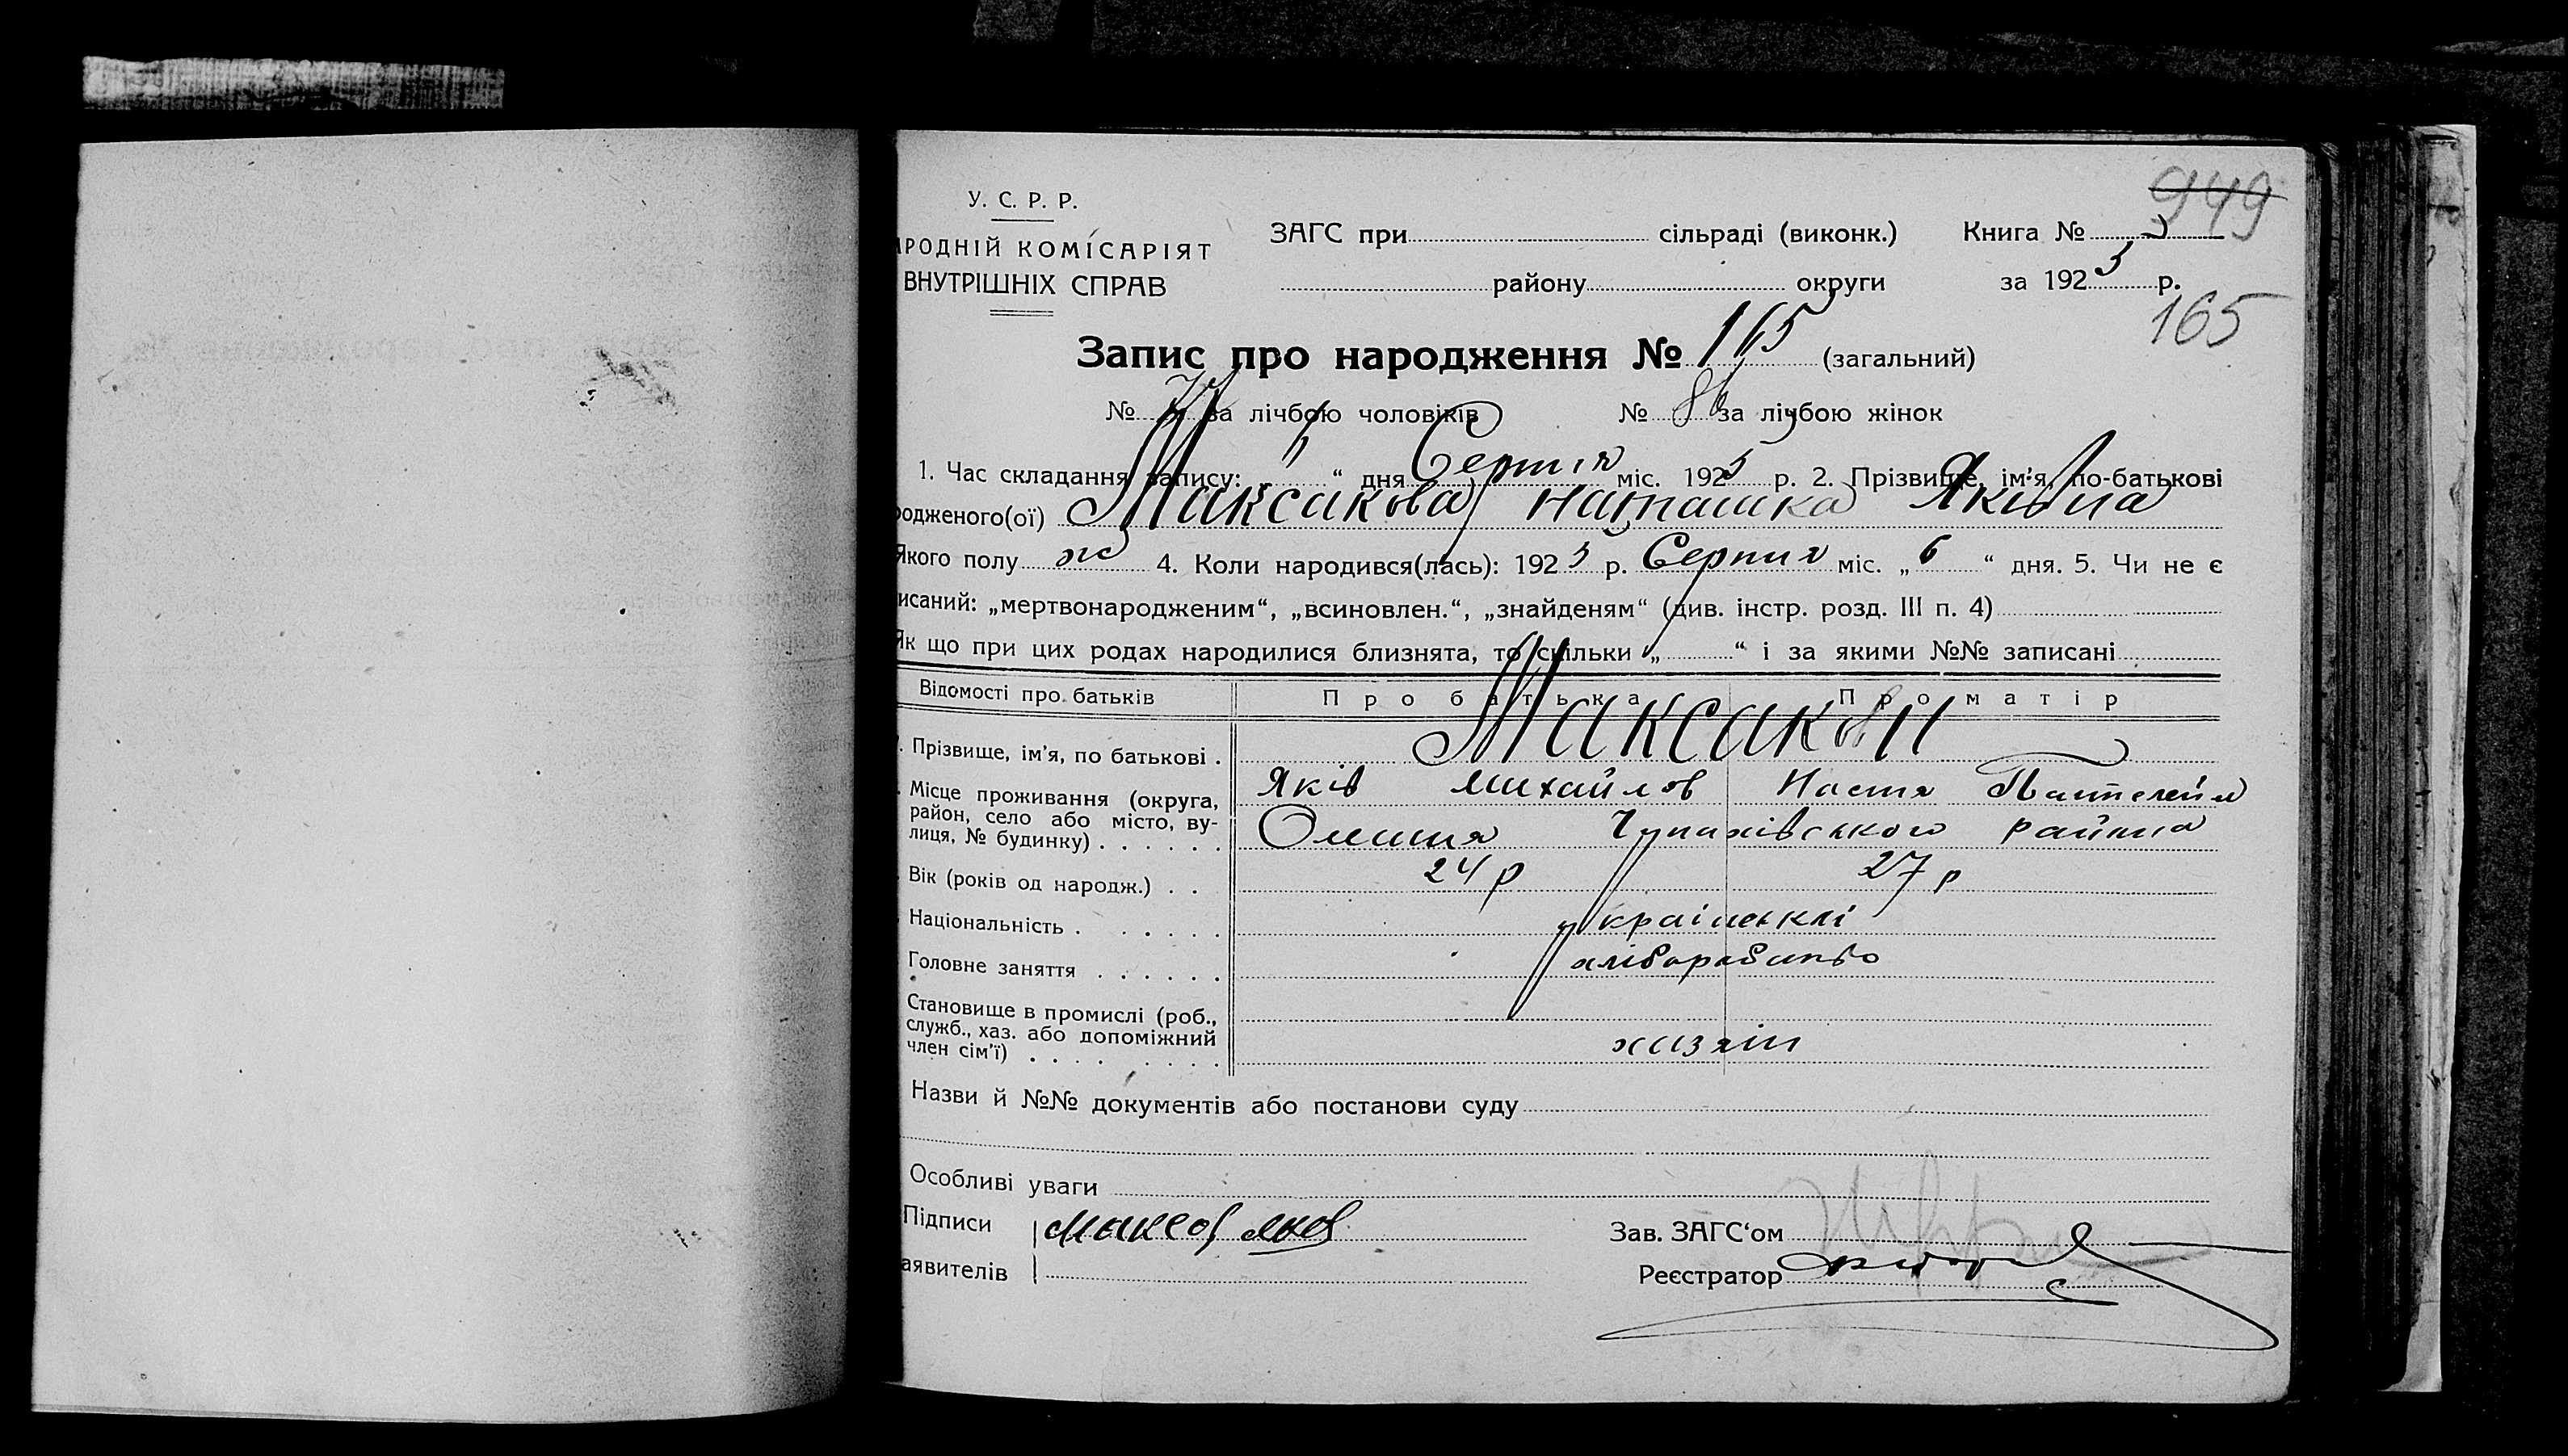 949
У. С. Р. Р.
АРОДНІЙ КОМІСАРІЯТ
ВНУТРІШНІХ СПРАВ
ЗАГС при сільраді (виконк.) Книга №
району округи за 1925 р.
165
Запис про народження № 165 (загальний)
№ за лічбою чоловіків № 86 за лічбою жінок
1. Час складання запису: “ дня Серпня міс. 1925 р. 2. Прізвище, ім’я, по-батькові
одженого(ої) Максакова Наташка Яківна
Якого полу ж 4. Коли народився(лась): 1925 р. Серпня міс. „6“ дня. 5. Чи не є
исаний: „мертвонародженим“, „всиновлен.“, „знайденям“ (див. інстр. розд. III п. 4)
Як що при цих родах народилися близнята, то скільки „ “ і за якими №№ записані
Відомості про батьків Про батька Про матір
Прізвище, ім’я, по батькові . Максакови
Яків Михайлов Настя Пантелейм
Місце проживання (округа,
район, село або місто, ву-
лиця, № будинку) . . . . . . Олешня Чупахівського района
Вік (років од народж.) . . 24 р 27 р
Національність . . . . . . українські
Головне заняття . . . . . . хліборобство
Становище в промислі (роб.,
служб., хаз. або допоміжний
член сім’ї) . . . . . . . . хазяін
Назви й №№ документів або постанови суду
Особливі уваги
Підписи Зав. ЗАГС‘ом
аявителів Реєстратор